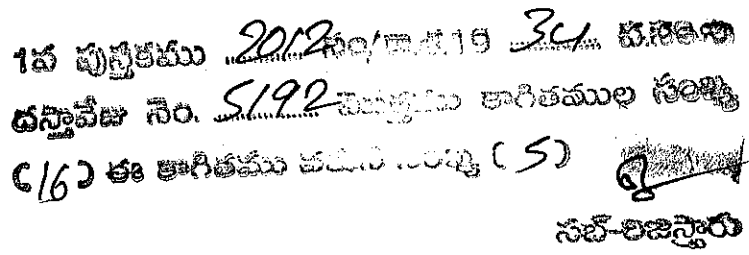 1వ పుస్తకము 2012 సం/శా.శ.19 34 వ.సంఖ్య
దస్తావేజు నెం. 5192 కాగితముల సంఖ్య
(16) ఈ కాగితము వరుస సంఖ్య (5)
సబ్-రిజిస్ట్రారు